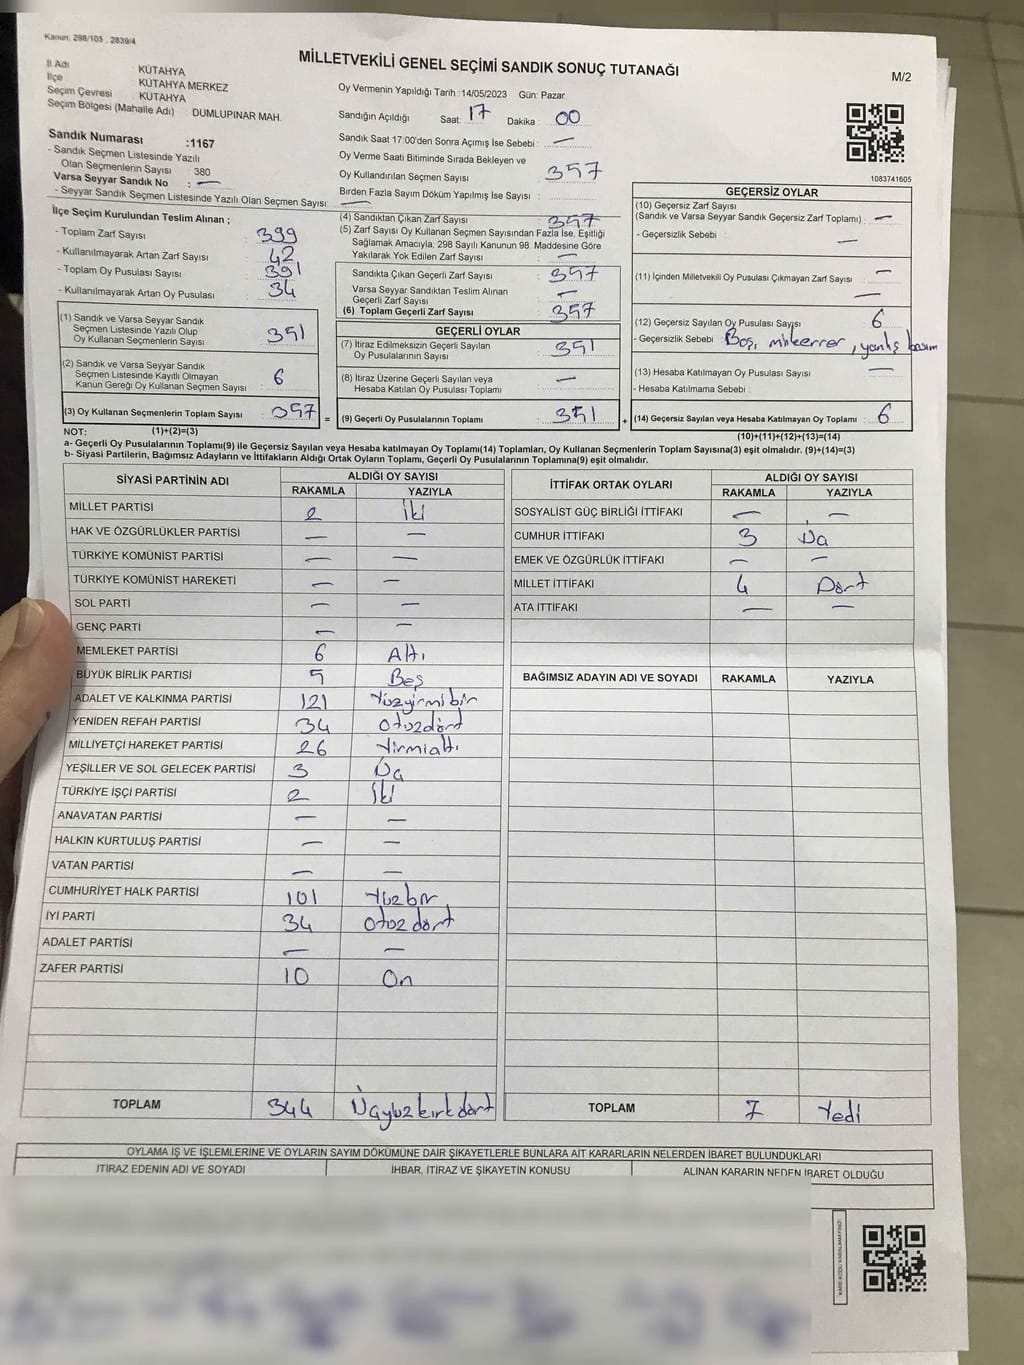 Kanun: 298/105 , 2839/4
MİLLETVEKİLİ GENEL SEÇİMİ SANDIK SONUÇ TUTANAĞI
M/2
İl Adı KÜTAHYA
İlçe KÜTAHYA MERKEZ
Seçim Çevresi KÜTAHYA
Seçim Bölgesi (Mahalle Adı) DUMLUPINAR MAH.
Oy Vermenin Yapıldığı Tarih :14/05/2023 Gün: Pazar
Sandığın Açıldığı Saat: 17 Dakika : 00
Sandık Saat 17:00'den Sonra Açımış İse Sebebi : —
Oy Verme Saati Bitiminde Sırada Bekleyen ve
Oy Kullandırılan Seçmen Sayısı : 357
Birden Fazla Sayım Döküm Yapılmış İse Sayısı :
1083741605
Sandık Numarası :1167
- Sandık Seçmen Listesinde Yazılı
Olan Seçmenlerin Sayısı : 380
Varsa Seyyar Sandık No : —
- Seyyar Sandık Seçmen Listesinde Yazılı Olan Seçmen Sayısı: —
İlçe Seçim Kurulundan Teslim Alınan ;
- Toplam Zarf Sayısı : 399
- Kullanılmayarak Artan Zarf Sayısı : 42
- Toplam Oy Pusulası Sayısı : 391
- Kullanılmayarak Artan Oy Pusulası : 34
(1) Sandık ve Varsa Seyyar Sandık
Seçmen Listesinde Yazılı Olup
Oy Kullanan Seçmenlerin Sayısı : 351
(2) Sandık ve Varsa Seyyar Sandık
Seçmen Listesinde Kayıtlı Olmayan
Kanun Gereği Oy Kullanan Seçmen Sayısı : 6
(3) Oy Kullanan Seçmenlerin Toplam Sayısı : 357
(4) Sandıktan Çıkan Zarf Sayısı : 357
(5) Zarf Sayısı Oy Kullanan Seçmen Sayısından Fazla İse, Eşitliği
Sağlamak Amacıyla, 298 Sayılı Kanunun 98. Maddesine Göre
Yakılarak Yok Edilen Zarf Sayısı : —
Sandıkta Çıkan Geçerli Zarf Sayısı : 357
Varsa Seyyar Sandıktan Teslim Alınan
Geçerli Zarf Sayısı : —
(6) Toplam Geçerli Zarf Sayısı : 357
GEÇERLİ OYLAR
(7) İtiraz Edilmeksizin Geçerli Sayılan
Oy Pusulalarının Sayısı : 351
(8) İtiraz Üzerine Geçerli Sayılan veya
Hesaba Katılan Oy Pusulası Toplamı : —
= (9) Geçerli Oy Pusulalarının Toplamı : 351 +
GEÇERSİZ OYLAR
(10) Geçersiz Zarf Sayısı
(Sandık ve Varsa Seyyar Sandık Geçersiz Zarf Toplamı) : —
- Geçersizlik Sebebi : —
(11) İçinden Milletvekili Oy Pusulası Çıkmayan Zarf Sayısı : —
—
(12) Geçersiz Sayılan Oy Pusulası Sayısı : 6
- Geçersizlik Sebebi : Boş, mükerrer, yanlış basım
(13) Hesaba Katılmayan Oy Pusulası Sayısı : —
- Hesaba Katılmama Sebebi :
(14) Geçersiz Sayılan veya Hesaba Katılmayan Oy Toplamı : 6
NOT: (1)+(2)=(3)
(10)+(11)+(12)+(13)=(14)
a- Geçerli Oy Pusulalarının Toplamı(9) ile Geçersiz Sayılan veya Hesaba katılmayan Oy Toplamı(14) Toplamları, Oy Kullanan Seçmenlerin Toplam Sayısına(3) eşit olmalıdır. (9)+(14)=(3)
b- Siyasi Partilerin, Bağımsız Adayların ve İttifakların Aldığı Ortak Oyların Toplam, Geçerli Oy Pusulalarının Toplamına(9) eşit olmalıdır.
SİYASİ PARTİNİN ADI ALDIĞI OY SAYISI
RAKAMLA YAZIYLA
MİLLET PARTİSİ 2 İki
HAK VE ÖZGÜRLÜKLER PARTİSİ — —
TÜRKİYE KOMÜNİST PARTİSİ — —
TÜRKİYE KOMÜNİST HAREKETİ — —
SOL PARTİ — —
GENÇ PARTİ — —
MEMLEKET PARTİSİ 6 Altı
BÜYÜK BİRLİK PARTİSİ 5 Beş
ADALET VE KALKINMA PARTİSİ 121 Yüzyirmibir
YENİDEN REFAH PARTİSİ 34 Otuzdört
MİLLİYETÇİ HAREKET PARTİSİ 26 Yirmialtı
YEŞİLLER VE SOL GELECEK PARTİSİ 3 Üç
TÜRKİYE İŞÇİ PARTİSİ 2 İki
ANAVATAN PARTİSİ — —
HALKIN KURTULUŞ PARTİSİ — —
VATAN PARTİSİ — —
CUMHURİYET HALK PARTİSİ 101 Yüzbir
İYİ PARTİ 34 Otuzdört
ADALET PARTİSİ — —
ZAFER PARTİSİ 10 On
TOPLAM 344 Üçyüzkırkdört
İTTİFAK ORTAK OYLARI ALDIĞI OY SAYISI
RAKAMLA YAZIYLA
SOSYALİST GÜÇ BİRLİĞİ İTTİFAKI — —
CUMHUR İTTİFAKI 3 Üç
EMEK VE ÖZGÜRLÜK İTTİFAKI — —
MİLLET İTTİFAKI 4 Dört
ATA İTTİFAKI — —
BAĞIMSIZ ADAYIN ADI VE SOYADI RAKAMLA YAZIYLA
TOPLAM 7 Yedi
OYLAMA İŞ VE İŞLEMLERİNE VE OYLARIN SAYIM DÖKÜMÜNE DAİR ŞİKAYETLERLE BUNLARA AİT KARARLARIN NELERDEN İBARET BULUNDUKLARI
İTİRAZ EDENİN ADI VE SOYADI İHBAR, İTİRAZ VE ŞİKAYETİN KONUSU ALINAN KARARIN NEDEN İBARET OLDUĞU
KARE KODU KARALAMAYINIZ!